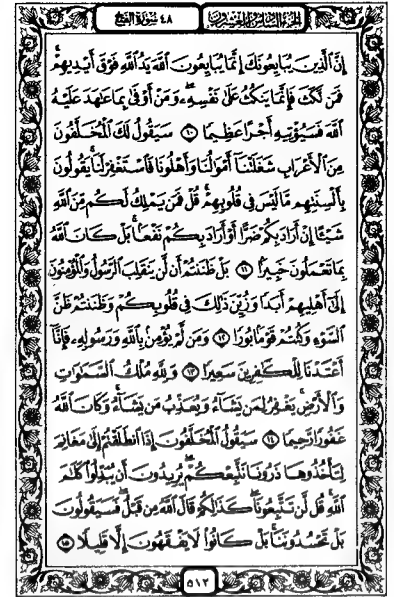 الجزء السادس والعشرون ٤٨ سورة الفتح
إِنَّ ٱلَّذِينَ يُبَايِعُونَكَ إِنَّمَا يُبَايِعُونَ ٱللَّهَ يَدُ ٱللَّهِ فَوْقَ أَيْدِيهِمْ ۚ
فَمَن نَّكَثَ فَإِنَّمَا يَنكُثُ عَلَىٰ نَفْسِهِۦ ۖ وَمَنْ أَوْفَىٰ بِمَا عَٰهَدَ عَلَيْهُ
ٱللَّهَ فَسَيُؤْتِيهِ أَجْرًا عَظِيمًا ١٠ سَيَقُولُ لَكَ ٱلْمُخَلَّفُونَ
مِنَ ٱلْأَعْرَابِ شَغَلَتْنَآ أَمْوَٰلُنَا وَأَهْلُونَا فَٱسْتَغْفِرْ لَنَا ۚ يَقُولُونَ
بِأَلْسِنَتِهِم مَّا لَيْسَ فِى قُلُوبِهِمْ ۚ قُلْ فَمَن يَمْلِكُ لَكُم مِّنَ ٱللَّهِ
شَيْـًٔا إِنْ أَرَادَ بِكُمْ ضَرًّا أَوْ أَرَادَ بِكُمْ نَفْعًۢا ۚ بَلْ كَانَ ٱللَّهُ
بِمَا تَعْمَلُونَ خَبِيرًۢا ١١ بَلْ ظَنَنتُمْ أَن لَّن يَنقَلِبَ ٱلرَّسُولُ وَٱلْمُؤْمِنُونَ
إِلَىٰٓ أَهْلِيهِمْ أَبَدًا وَزُيِّنَ ذَٰلِكَ فِى قُلُوبِكُمْ وَظَنَنتُمْ ظَنَّ
ٱلسَّوْءِ وَكُنتُمْ قَوْمًۢا بُورًا ١٢ وَمَن لَّمْ يُؤْمِنۢ بِٱللَّهِ وَرَسُولِهِۦ فَإِنَّآ
أَعْتَدْنَا لِلْكَٰفِرِينَ سَعِيرًا ١٣ وَلِلَّهِ مُلْكُ ٱلسَّمَٰوَٰتِ
وَٱلْأَرْضِ ۚ يَغْفِرُ لِمَن يَشَآءُ وَيُعَذِّبُ مَن يَشَآءُ ۚ وَكَانَ ٱللَّهُ
غَفُورًا رَّحِيمًا ١٤ سَيَقُولُ ٱلْمُخَلَّفُونَ إِذَا ٱنطَلَقْتُمْ إِلَىٰ مَغَانِمَ
لِتَأْخُذُوهَا ذَرُونَا نَتَّبِعْكُمْ ۖ يُرِيدُونَ أَن يُبَدِّلُوا۟ كَلَٰمَ
ٱللَّهِ ۚ قُل لَّن تَتَّبِعُونَا كَذَٰلِكُمْ قَالَ ٱللَّهُ مِن قَبْلُ ۖ فَسَيَقُولُونَ
بَلْ تَحْسُدُونَنَا ۚ بَلْ كَانُوا۟ لَا يَفْقَهُونَ إِلَّا قَلِيلًا ١٥
٥١٢